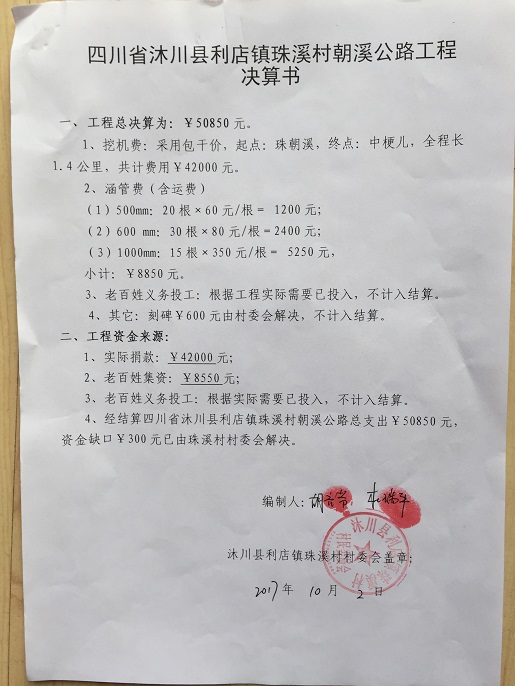 四川省沐川县利店镇珠溪村朝溪公路工程
决算书
一、工程总决算为：￥50850元。
1、挖机费：采用包干价，起点：珠朝溪，终点：中梗儿，全程长
1.4公里，共计费用￥42000元。
2、涵管费（含运费）
（1）500mm：20根×60元/根= 1200元；
（2）600 mm：30根×80元/根=2400元；
（3）1000mm：15根×350元/根= 5250元，
小计：￥8850元。
3、老百姓义务投工：根据工程实际需要已投入，不计入结算。
4、其它：刻碑￥600元由村委会解决，不计入结算。
二、工程资金来源：
1、实际捐款：￥42000元；
2、老百姓集资：￥8550元。
3、老百姓义务投工：根据实际需要已投入，不计入结算。
4、经结算四川省沐川县利店镇珠溪村朝溪公路总支出￥50850元，
资金缺口￥300元已由珠溪村村委会解决。
编制人：
沐川县利店镇珠溪村村委会盖章；
2017年 10月 2日